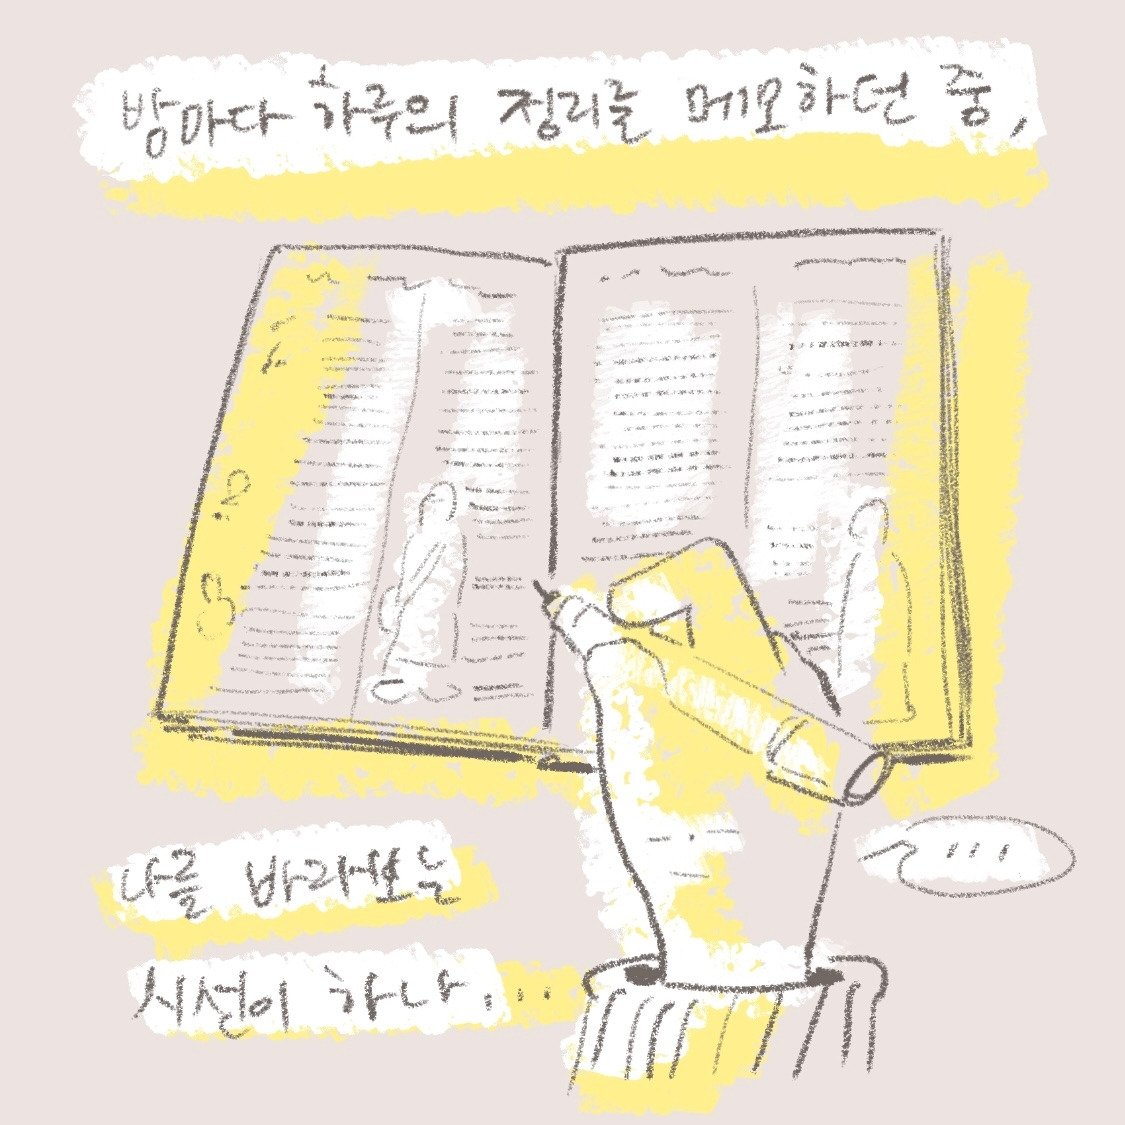 밤마다 하루의 정리를 메모하던 중,
나를 바라보는
시선이 하나...
...